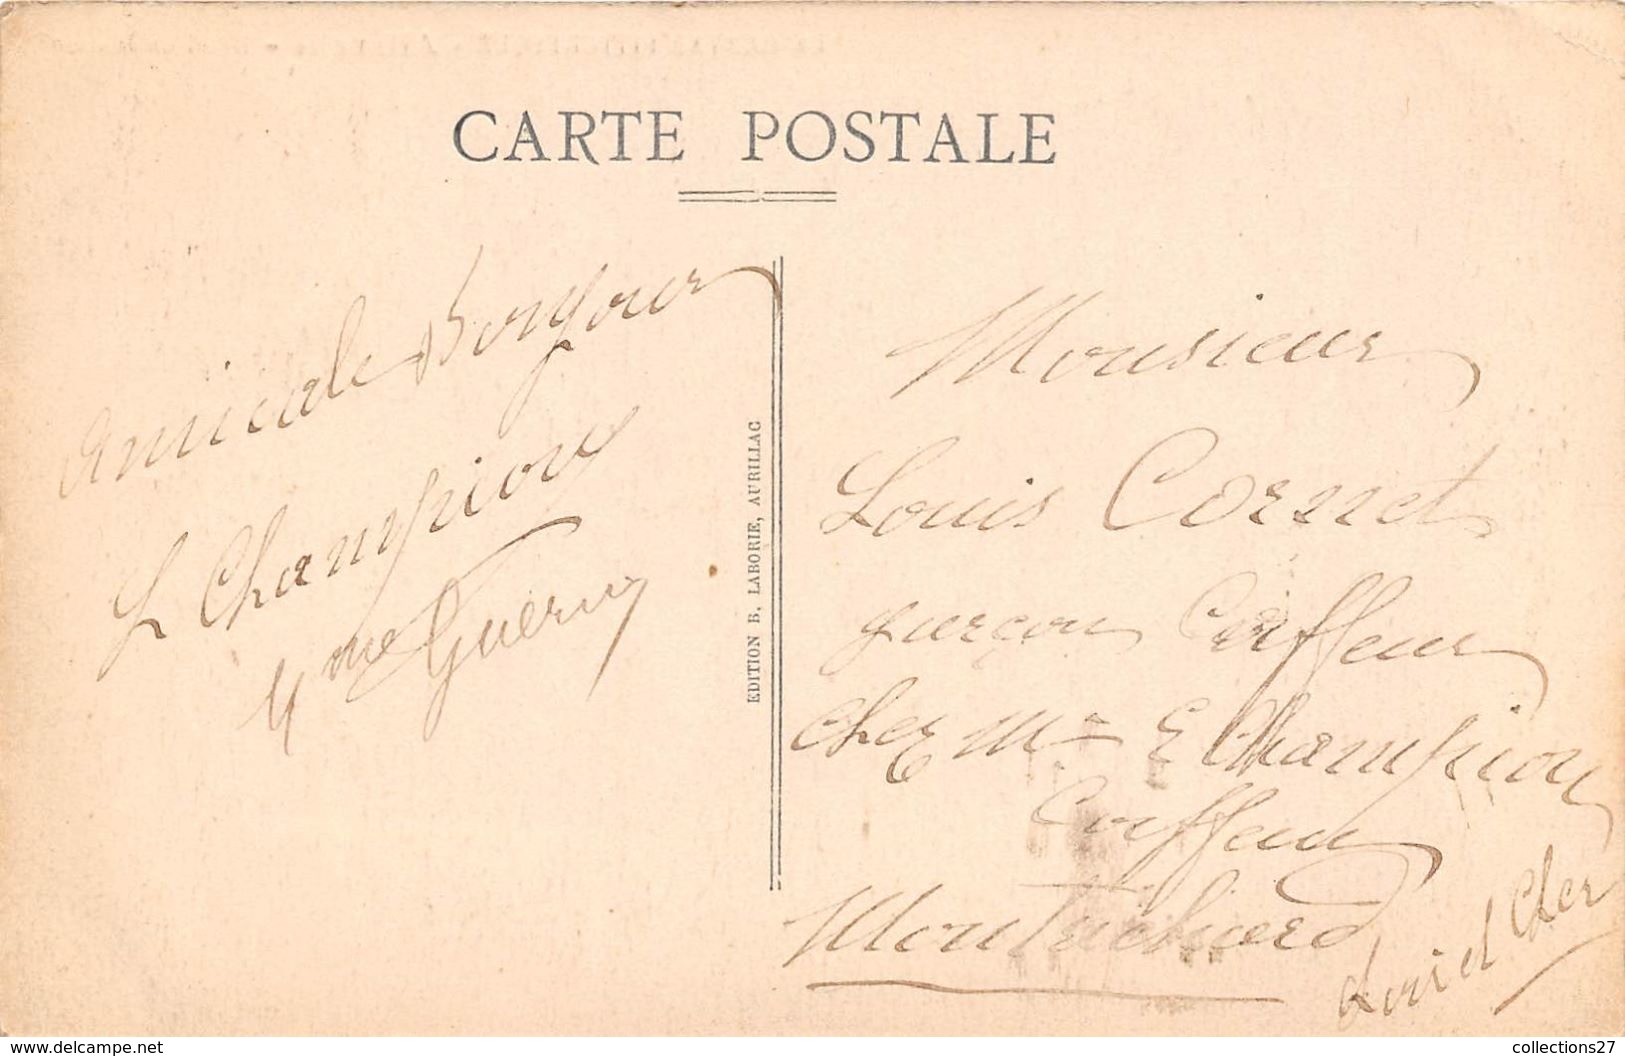 CARTE POSTALE
Amicale Bonjour
L Champion
4 me Guerin
EDITION B. LABORIE, AURILLAC
Monsieur
Louis Cornet
garçon Coiffeur
chez Mr E Champion
Coiffeur
Montrichard
Loir et Cher
collections27